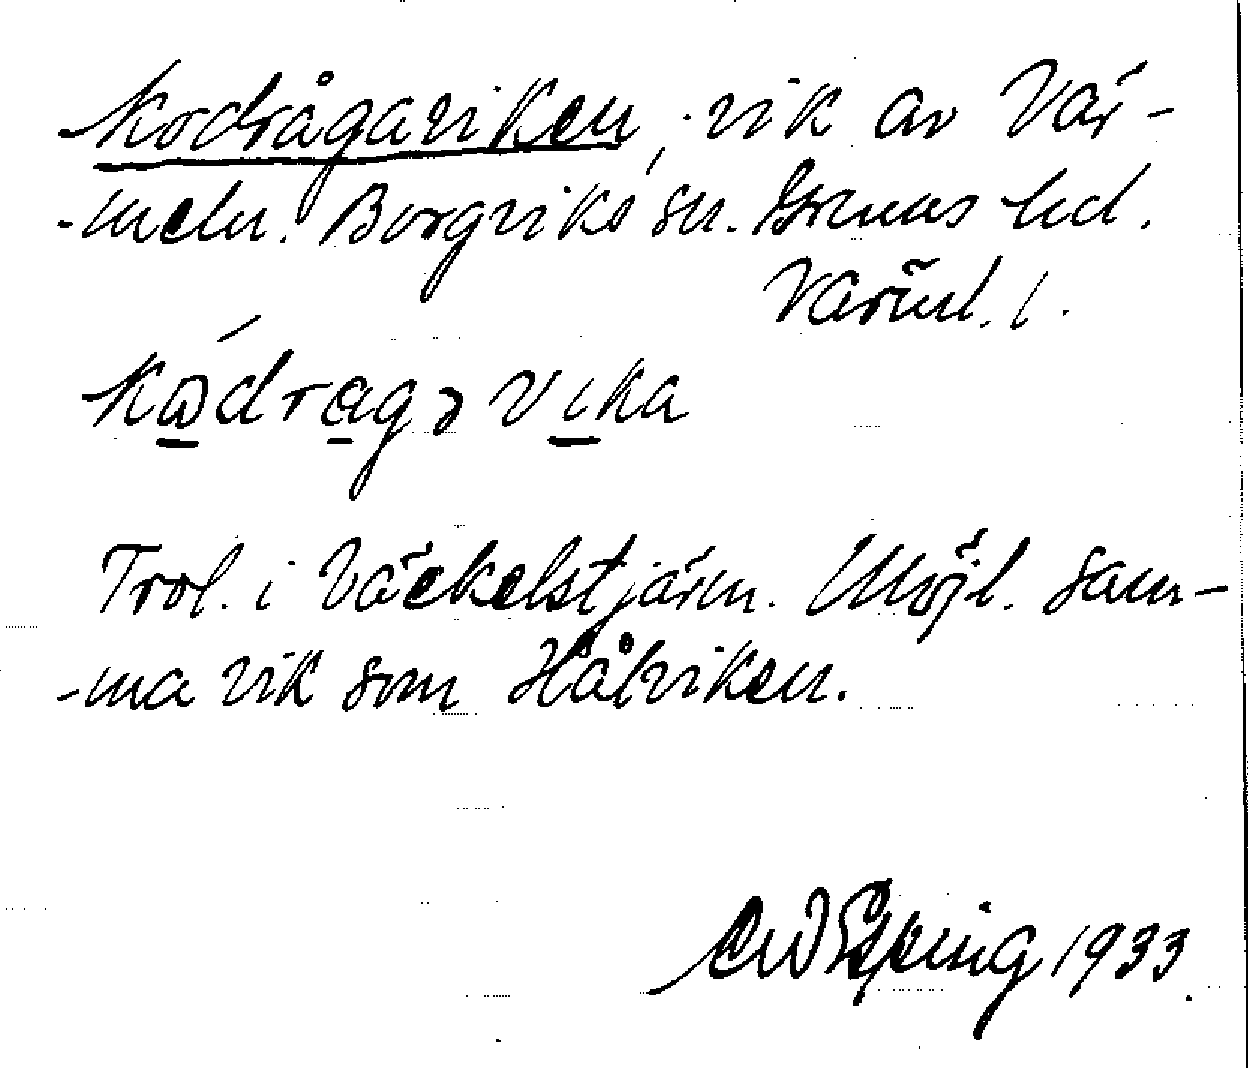 Kodrågaviken, vik av Vär-
-meln. Borgviks sn. Grums hd.
Värml. l.
Kødragə vika
Trol. i Väckelstjärn. Möjl. sam-
-ma vik som Hålviken.
1933.